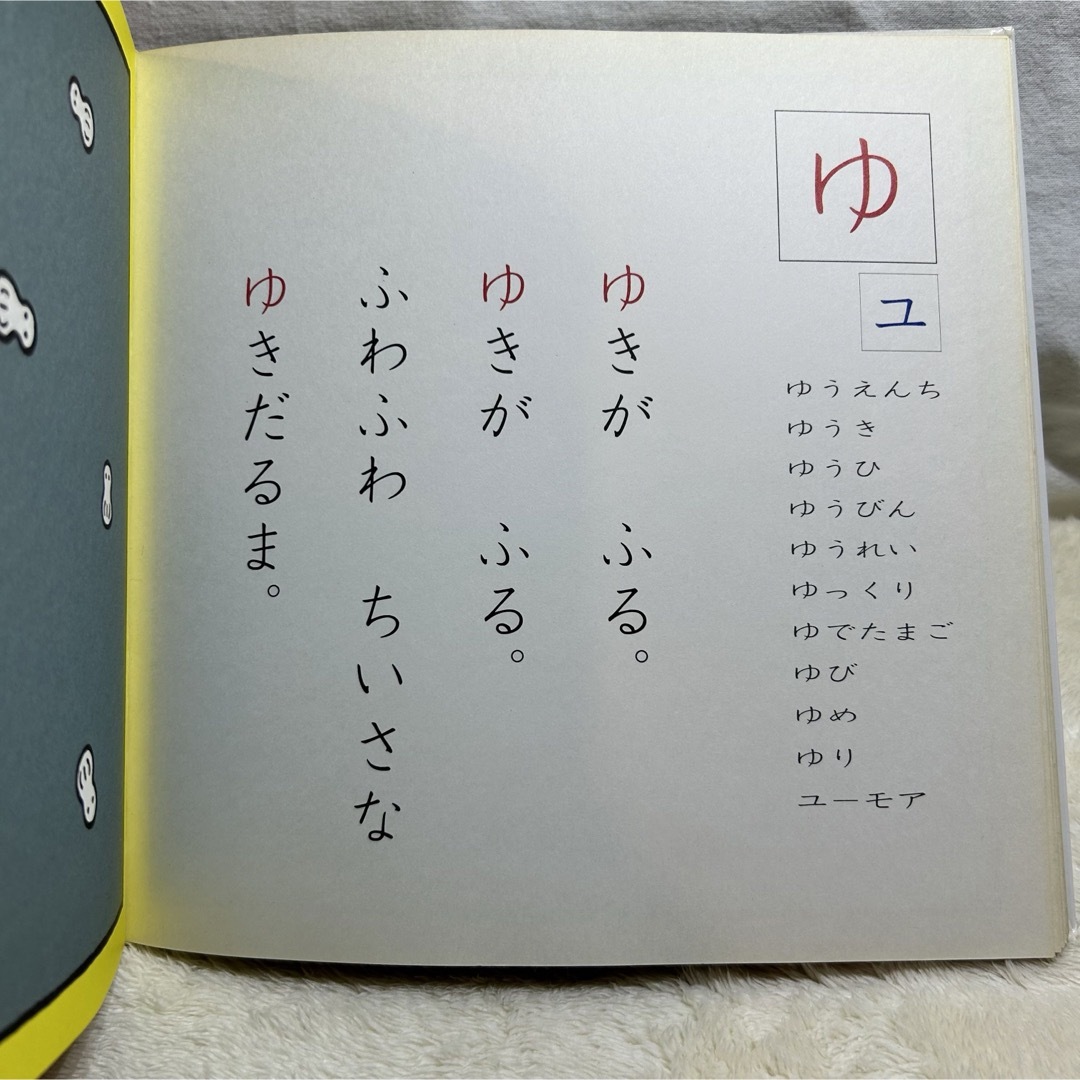 ゆ
ユ
ゆうえんち
ゆうき
ゆうひ
ゆうびん
ゆうれい
ゆっくり
ゆでたまご
ゆび
ゆめ
ゆり
ユーモア
ゆきが　ふる。
ゆきが　ふる。
ふわふわ　ちいさな
ゆきだるま。